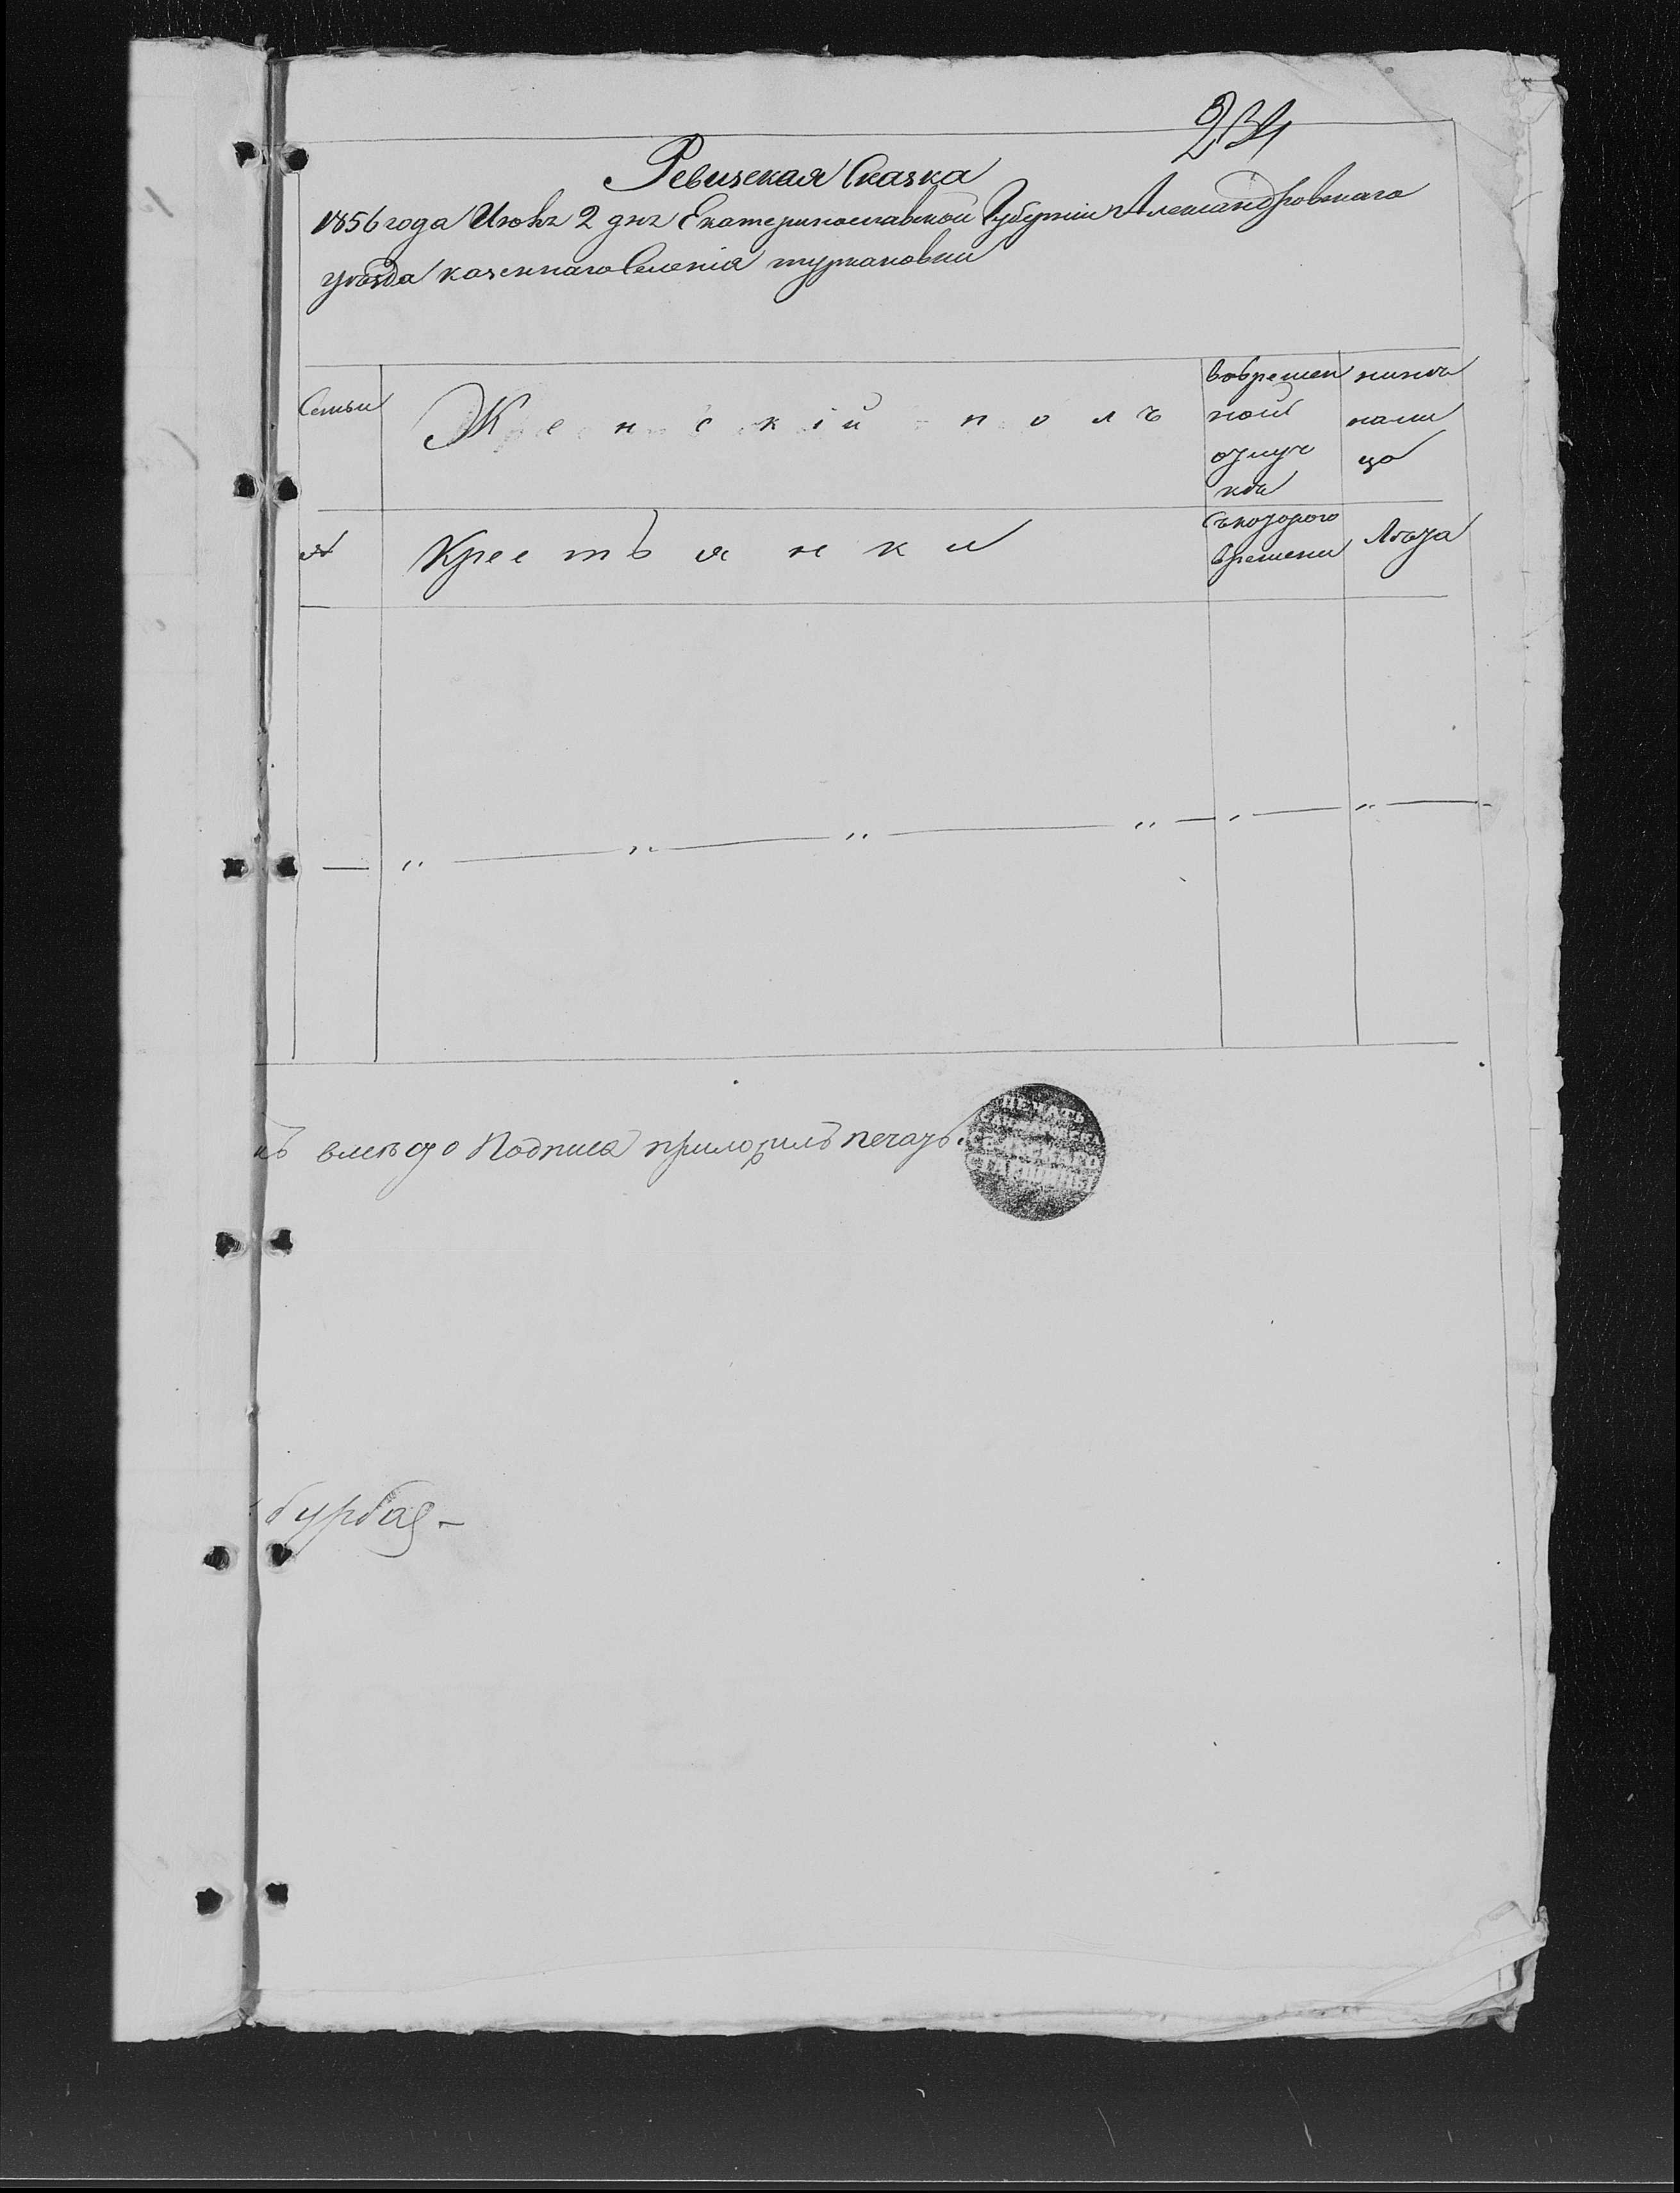 234
Ревизская Сказка
1856 года Июня 2 дня Екатеринославской Губерніи Александровскаго
уѣзда казеннаго Селенія туркановки
Семьи
Женскій полъ
во времен
ной
отлуч
кѣ
нынѣ
на ли
цо
№
Крестьянки
Съ которого
времени
Лѣта
— „ — „ — „ — „ — „ — „ —
въ вместо Подписа приложилъ печать
ПЕЧАТЬ
СТАРШИНЫ
бурбас